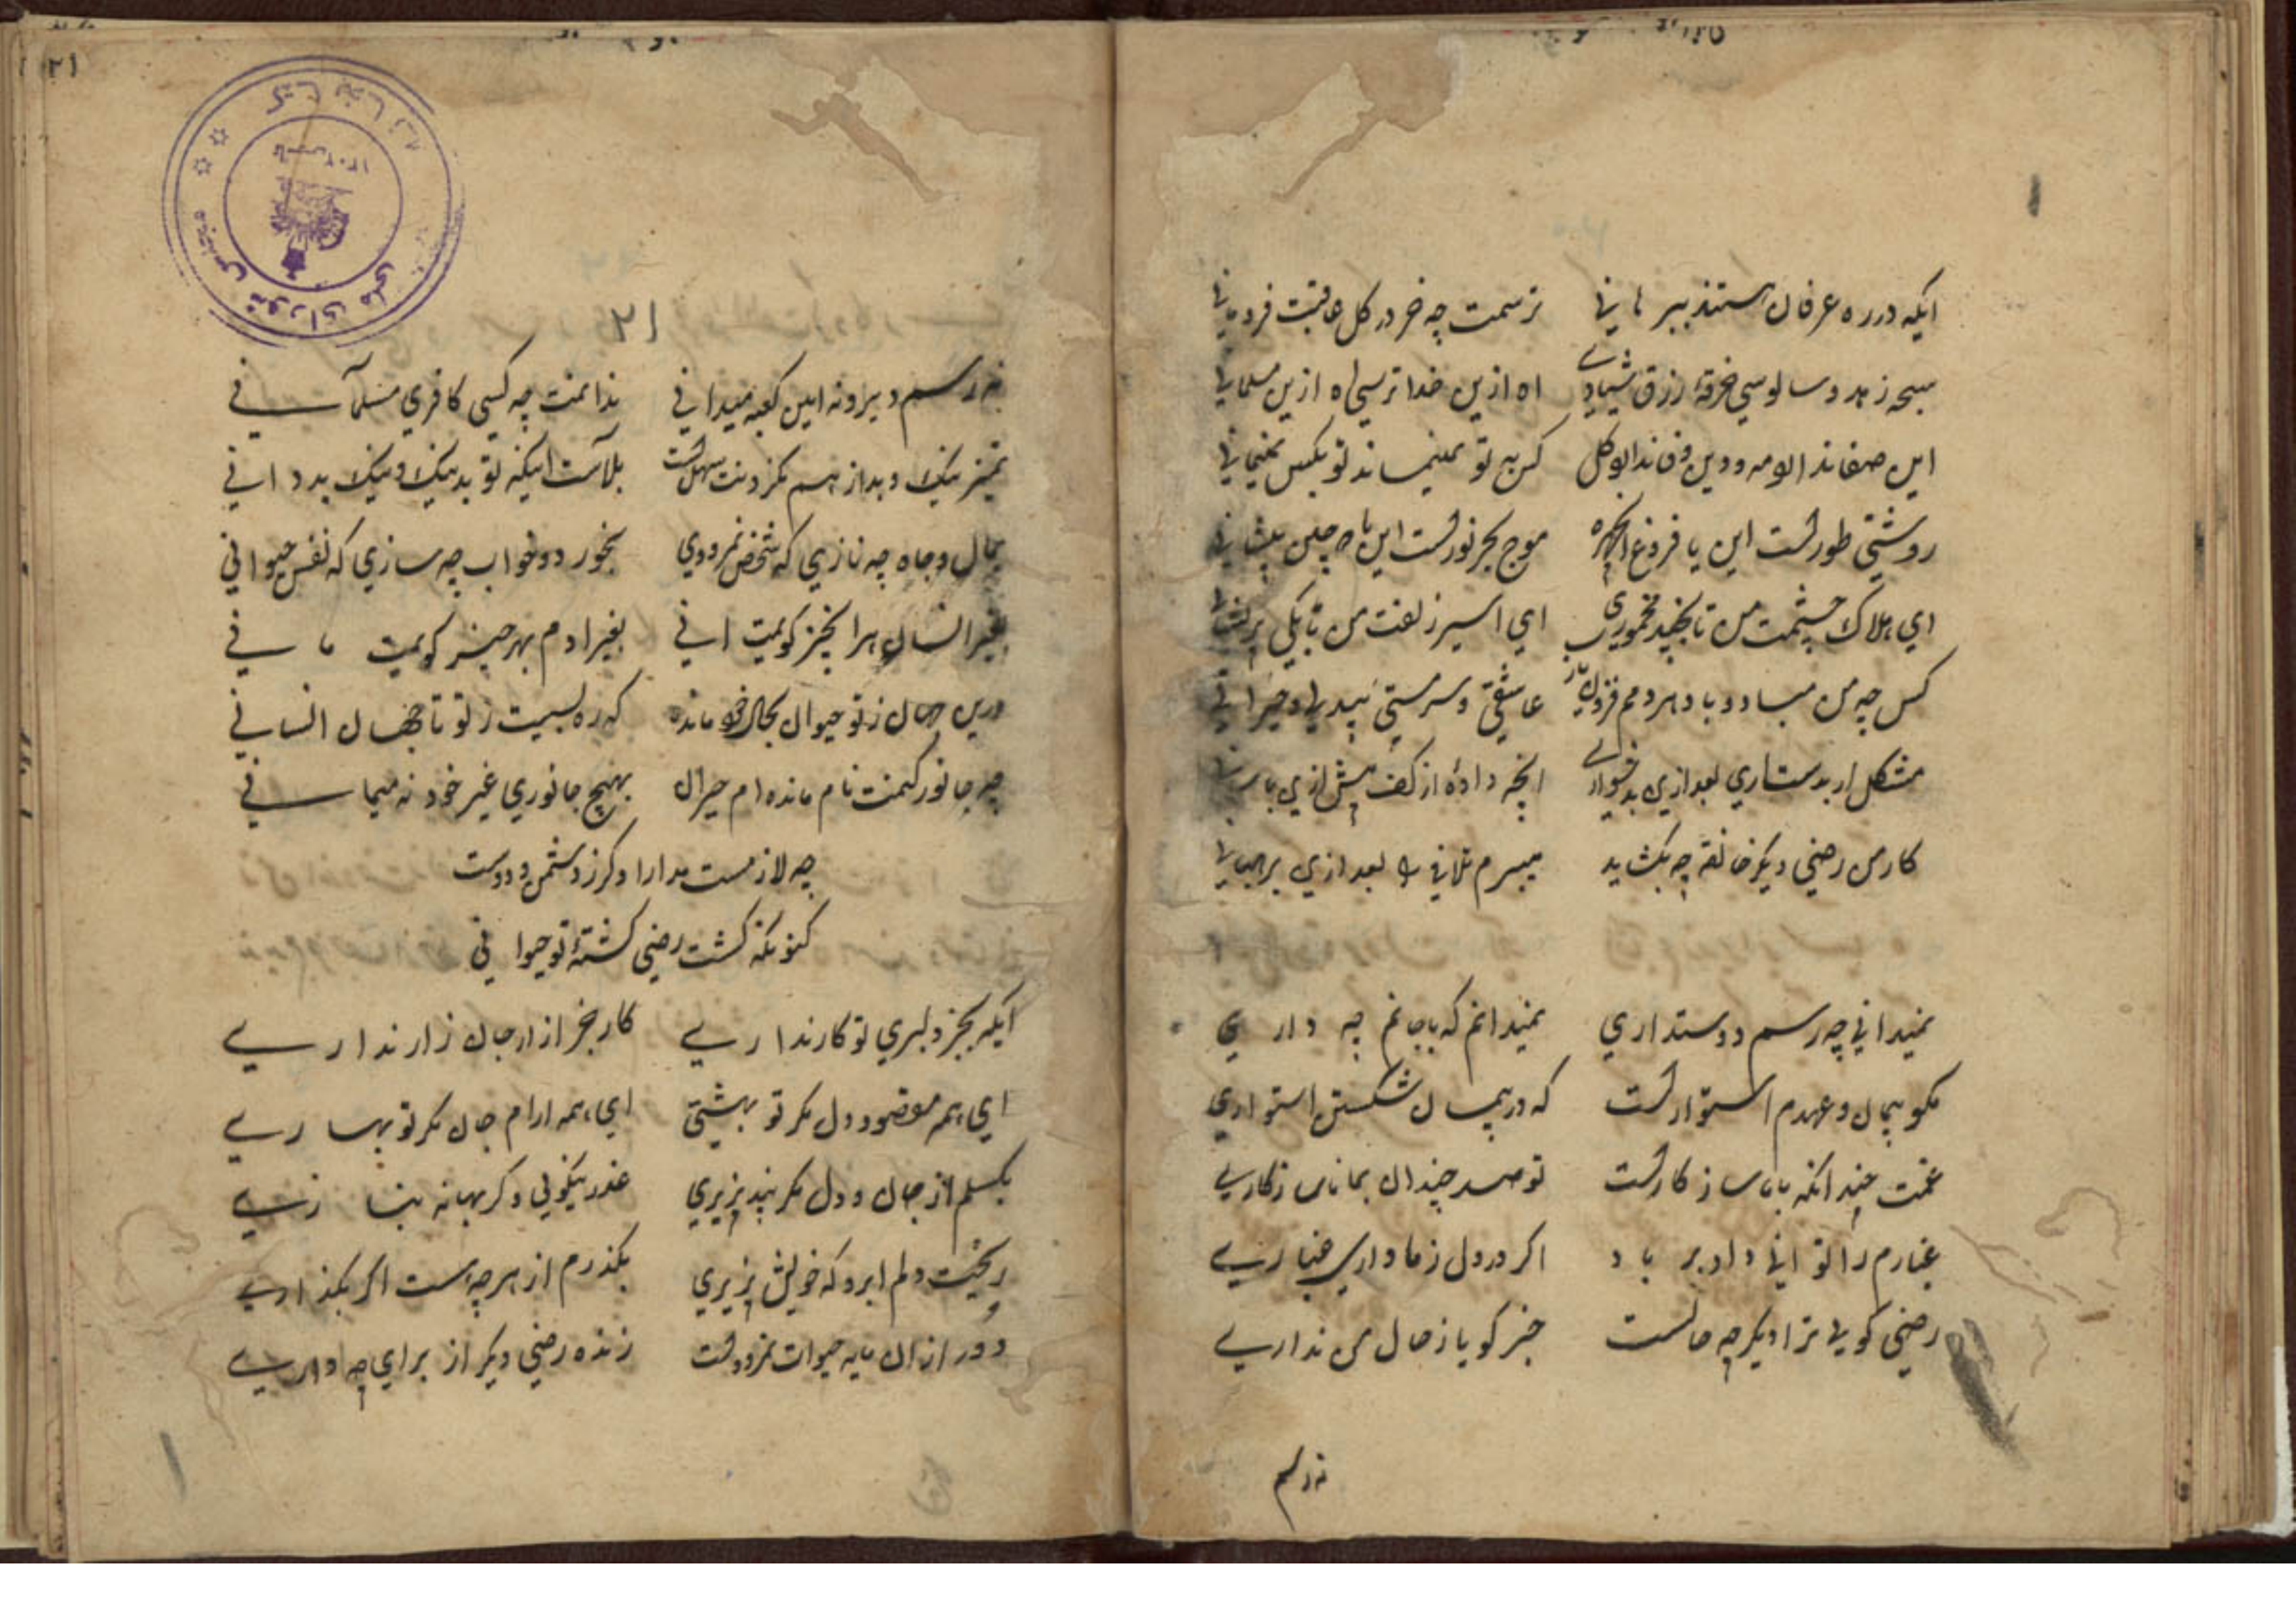 ایکه در ره عرفان مستند ببرهانی ترسمت چه خر در کل عاقبت فرومانی
سبحه زهد و سالوسی خرقهٔ رزق شیادی اه ازین خدا ترسی اه ازین مسلمانی
این صفا ندارد مه و وین وفا ندارد کل کس به تو نمیماند تو بکس نمیمانی
روشنی طورست این یا فروغ ان چهره موج بحر نورست این یا چین پیشانی
ای هلاک چشمت من تا بچند مخموری ای اسیر زلفت من تا بکی پریشانی
کس چه من مباد و باد هر دمم فزون یا رب عاشقی و سرمستی بیدلی و حیرانی
مشکل ار بدست اری بعد ازین بدشواری انچه دادهٔ از کف پیش ازین باسانی
کار من رضی دیگر خانقه چه بکشاید میبرم تلافی را بعد ازین برهبانی
نمیدانی چه رسم دوستداری نمیدانم که با جانم چه داری
مکو پیمان و عهدم استوارست که در پیمان شکستن استواری
غمت چندانکه با ما سازکارست تو صد چندان بما ناسازکاری
غبارم را توانی داد بر باد اگر در دل ز ما داری غباری
رضی کویی ترا دیگر چه حالست خبر کویا ز حال من نداری
نه رسم
۲۱
۲۱
نه رسم دیر و نه ایین کعبه میدانی ندانمت چه کسی کافری مسلمانی
تمیز نیک و بد از هم نکردنت سهل است بلاست اینکه تو بد نیک و نیک بد دانی
بمال و جاه چه نازی که شخص نمرودی بخورد و خواب چه سازی که نفس حیوانی
بغیر انسان هر انچیز کویمت انی بغیر ادم بهر چیز کویمت مانی
درین جهان ز تو حیوان بحال خود مانده که ره بسیست ز تو تا جهان انسانی
چه جانور کنمت نام مانده ام حیران بهیچ جانوری غیر خود نه میمانی
چه لازمست مدارا دکر ز دشمن و دوست
کنونکه کشت رضی کشتهٔ تو حیوانی
ایکه بجز دلبری تو کار نداری کار بجز ازار جان زار نداری
ای همه مقصود دل مکر تو بهشتی ای همه ارام جان مکر تو بهاری
بکسلم از جان و دل مکر بپذیری عذر نیکویی دکر بهانه نیاری
ریخت دلم ابرو که خویش پذیری بکذرم از هرچه هست اکر بکذاری
دور از ان مایه حیات نمردست زنده رضی دیکر از برای چه داری
کتابخانه مجلس شورای ملی
۱۳۰۲